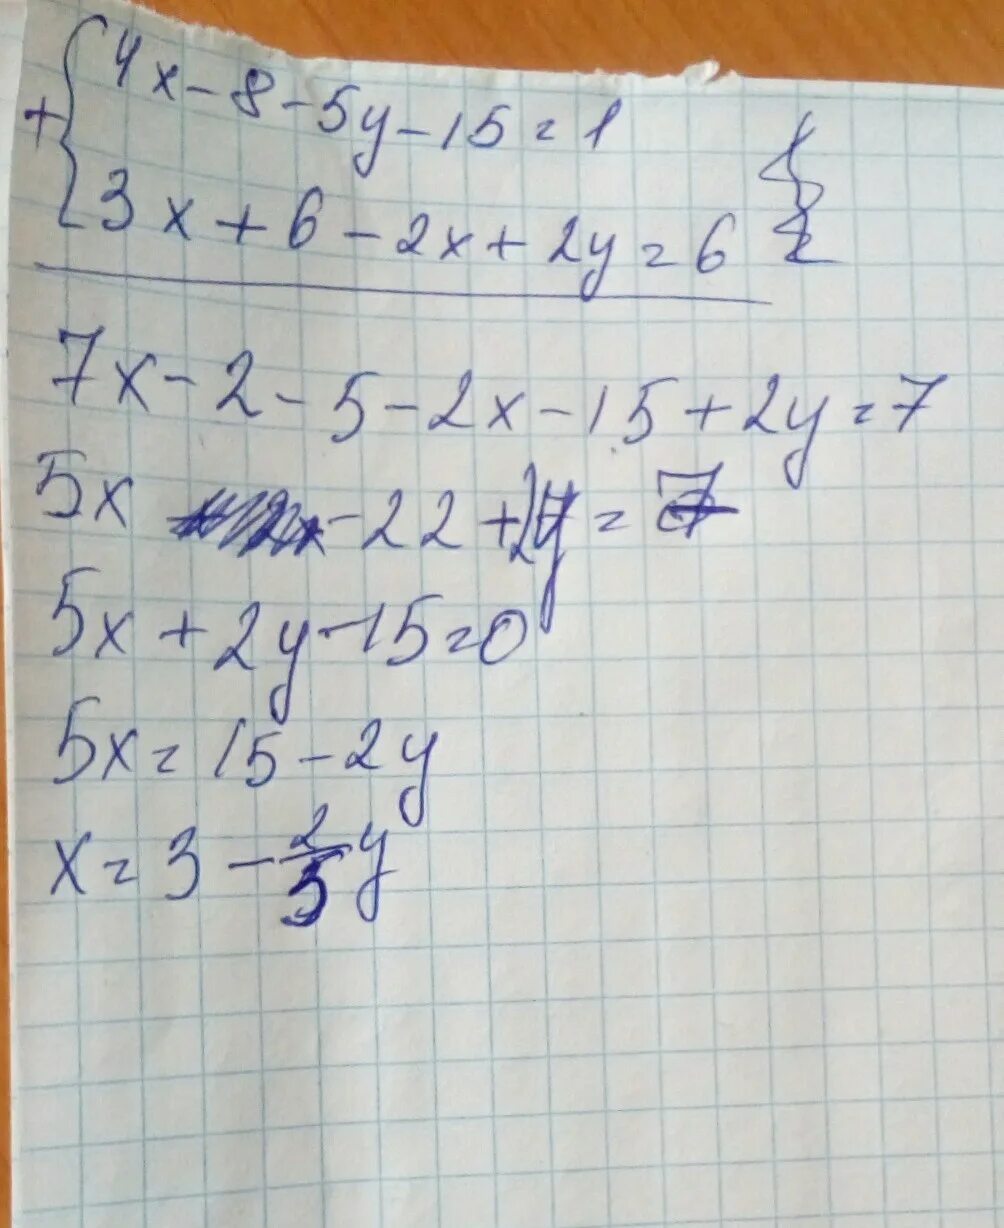 + { 4x - 8 - 5y - 15 = 1
3x + 6 - 2x + 2y = 6
7x - 2 - 5 - 2x - 15 + 2y = 7
5x - 22 + 2y = 7
5x + 2y - 15 = 0
5x = 15 - 2y
x = 3 - 2/5 y